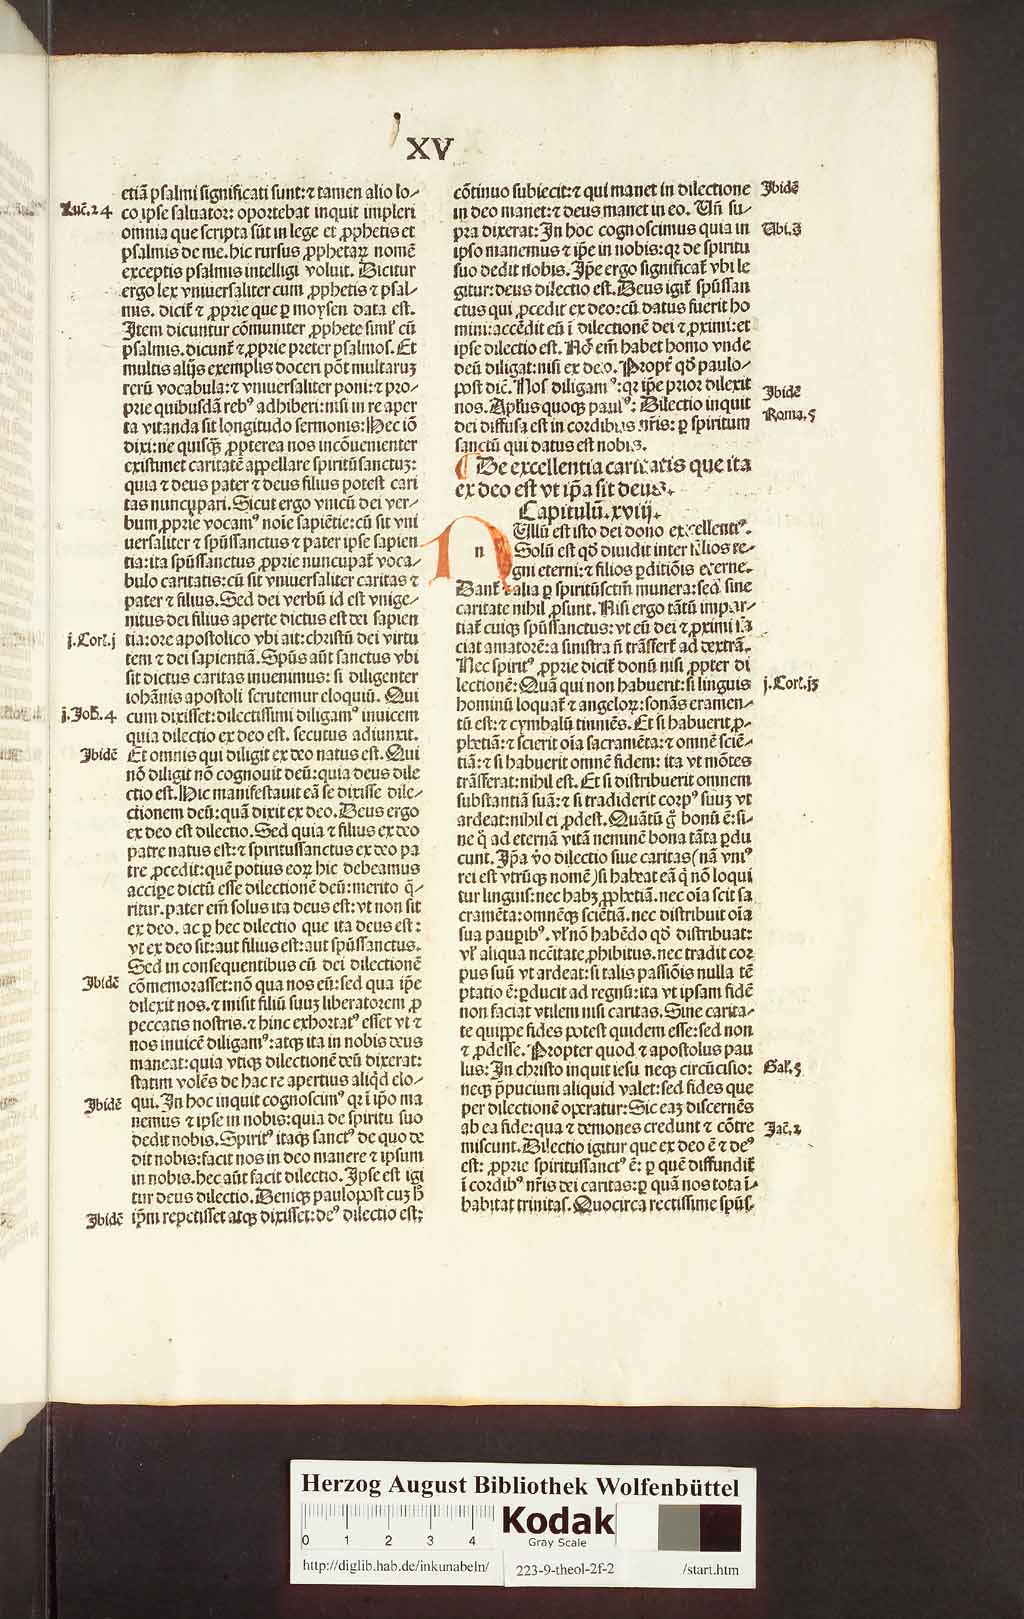 XV
etiã psalmi significati sunt: ⁊ tamen alio lo⸗
Luc̃.24
co ipse saluator: oportebat inquit impleri
omnia que scripta sũt in lege et ꝓphetis et
psalmis de me. hic rursus ꝓphetaꝝ nomẽ
exceptis psalmis intelligi voluit. Dicitur
ergo lex vniuersaliter cum ꝓphetis ⁊ psal⸗
mis. dicit̃ ⁊ ꝓprie que ꝑ moysen data est.
Item dicuntur cõmuniter ꝓphete simĺ cũ
psalmis. dicunt̃ ⁊ ꝓprie preter psalmos. Et
multis alijs exemplis doceri põt multaruꝫ
rerũ vocabula: ⁊ vniuersaliter poni: ⁊ pro⸗
prie quibusdã rebꝰ adhiberi: nisi in re aper
ta vitanda sit longitudo sermonis: Hec iõ
dixi: ne quisqꝫ ꝓpterea nos incõuenienter
existimet caritatẽ appellare spiritũsanctuꝫ:
quia ⁊ deus pater ⁊ deus filius potest cari
tas nuncupari. Sicut ergo vnicũ dei ver⸗
bum ꝓprie vocamꝰ noĩe sapiẽtie: cũ sit vni
uersaliter ⁊ spũssanctus ⁊ pater ipse sapien
tia: ita spũssanctus ꝓprie nuncupat̃ voca⸗
bulo caritatis: cũ sit vniuersaliter caritas ⁊
pater ⁊ filius. Sed dei verbũ id est vnige⸗
nitus dei filius aperte dictus est dei sapien
j.Cor̃.j
tia: ore apostolico vbi ait: christũ dei virtu
tem ⁊ dei sapientiã. Spũs aũt sanctus vbi
sit dictus caritas inuenimus: si diligenter
iohãnis apostoli scrutemur eloquiũ. Qui
j.Joh̃.4
cum dixisset: dilectissimi diligamꝰ inuicem
quia dilectio ex deo est. secutus adiunxit.
Ibidẽ
Et omnis qui diligit ex deo natus est. Qui
nõ diligit nõ cognouit deũ: quia deus dile
ctio est. Hic manifestauit eã se dixisse dile⸗
ctionem deũ: quã dixit ex deo. Deus ergo
ex deo est dilectio. Sed quia ⁊ filius ex deo
patre natus est: ⁊ spiritussanctus ex deo pa
tre ꝓcedit: quẽ potius eoꝝ hic debeamus
accipere dictũ esse dilectionẽ deũ: merito q̃⸗
ritur. pater em̃ solus ita deus est: vt non sit
ex deo. ac ꝑ hec dilectio que ita deus est:
vt ex deo sit: aut filius est: aut spũssanctus.
Sed in consequentibus cũ dei dilectionẽ
Ibidẽ
cõmemorasset: nõ qua nos eũ: sed qua ip̃e
dilexit nos. ⁊ misit filiũ suuꝫ liberatorem ꝓ
peccatis nostris. ⁊ hinc exhortatꝰ esset vt ⁊
nos inuicẽ diligamꝰ: atqꝫ ita in nobis deus
maneat: quia vtiqꝫ dilectionẽ deũ dixerat:
statim volẽs de hac re apertius aliqd̃ elo⸗
Ibidẽ
qui. In hoc inquit cognoscimꝰ qꝛ ĩ ip̃o ma
nemus ⁊ ipse in nobis: quia de spiritu suo
dedit nobis. Spiritꝰ itaqꝫ sanctꝰ de quo de
dit nobis: facit nos in deo manere ⁊ ipsum
in nobis. hec aũt facit dilectio. Ipse est igi
tur deus dilectio. Deniqꝫ paulopost cuꝫ h̃
Ibidẽ
ip̃m repetisset atqꝫ dixisset: deꝰ dilectio est:
cõtinuo subiecit: ⁊ qui manet in dilectione
Ibidẽ
in deo manet: ⁊ deus manet in eo. Vñ su⸗
pra dixerat: In hoc cognoscimus quia in
Vbi.S̃
ipso manemus ⁊ ip̃e in nobis: qꝛ de spiritu
suo dedit nobis. Ip̃e ergo significat̃ vbi le
gitur: deus dilectio est. Deus igit̃ spũssan
ctus qui ꝓcedit ex deo: cũ datus fuerit ho
mini: accẽdit eũ ĩ dilectionẽ dei ⁊ ꝓximi: et
ipse dilectio est. Nõ em̃ habet homo vnde
deũ diligat: nisi ex deo. Propt̃ qd̃ paulo⸗
post dic̃. Nos diligamꝰ: qꝛ ip̃e prior dilexit
Ibidẽ
nos. Apĺus quoqꝫ paulꝰ: Dilectio inquit
Roma.5
dei diffusa est in cordibus nr̃is: ꝑ spiritum
sanctũ qui datus est nobis.
De excellentia caritatis que ita
ex deo est vt ip̃a sit deus.
Capitulũ.xviij.
n
Ullũ est isto dei dono excellentiꝰ.
Solũ est qd̃ diuidit inter filios re⸗
gni eterni: ⁊ filios ꝑditiõis eterne.
Dant̃ ⁊ alia ꝑ spiritũsctm̃ munera: sed sine
caritate nihil ꝓsunt. Nisi ergo tãtũ impar⸗
tiat̃ cuiqꝫ spũssanctus: vt eũ dei ⁊ ꝓximi fa
ciat amatorẽ: a sinistra ñ trãsfert̃ ad dextrã.
Nec spiritꝰ ꝓprie dicit̃ donũ nisi ꝓpter di
lectionẽ: Quã qui non habuerit: si linguis
j.Cor̃.jꝫ
hominũ loquat̃ ⁊ angeloꝝ: sonãs eramen⸗
tũ est: ⁊ cymbalũ tinniẽs. Et si habuerit ꝓ⸗
phetiã: ⁊ scierit oĩa sacramẽta: ⁊ omnẽ sciẽ⸗
tiã: ⁊ si habuerit omnẽ fidem: ita vt mõtes
trãsferat: nihil est. Et si distribuerit omnem
substantiã suã: ⁊ si tradiderit corpꝰ suuꝫ vt
ardeat: nihil ei ꝓdest. Quãtũ g̃ bonũ ẽ: si⸗
ne q̃ ad eternã vitã neminẽ bona tãta ꝑdu
cunt. Ip̃a ṽo dilectio siue caritas (nã vniꝰ
rei est vtrũqꝫ nomẽ) si habeat eã q̃ nõ loqui
tur linguis: nec habꝫ ꝓphetiã. nec oĩa scit sa
cramẽta: omnẽqꝫ sciẽtiã. nec distribuit oĩa
sua pauꝑibꝰ. vĺ nõ habẽdo qd̃ distribuat:
vĺ aliqua ncc̃itate ꝓhibitus. nec tradit cor
pus suũ vt ardeat: si talis passiõis nulla tẽ
ptatio ẽ: ꝑducit ad regnũ: ita vt ipsam fidẽ
non faciat vtilem nisi caritas. Sine carita⸗
te quippe fides potest quidem esse: sed non
⁊ ꝓdesse. Propter quod ⁊ apostolus pau
lus: In christo inquit iesu neqꝫ circũcisio:
Gaĺ.5
neqꝫ p̃pucium aliquid valet: sed fides que
per dilectionẽ operatur: Sic eaꝫ discernẽs
ab ea fide: qua ⁊ demones credunt ⁊ cõtre
Jac̃.2
miscunt. Dilectio igitur que ex deo ẽ ⁊ deꝰ
est: ꝓprie spiritussanctꝰ ẽ: ꝑ quẽ diffundit̃
ĩ cordibꝰ nr̃is dei caritas: ꝑ quã nos tota ĩ⸗
habitat trinitas. Quocirca rectissime spũs.
Herzog August Bibliothek Wolfenbüttel
0 1 2 3 4
Kodak
Gray Scale
http://diglib.hab.de/inkunabeln/ 223-9-theol-2f-2 /start.htm